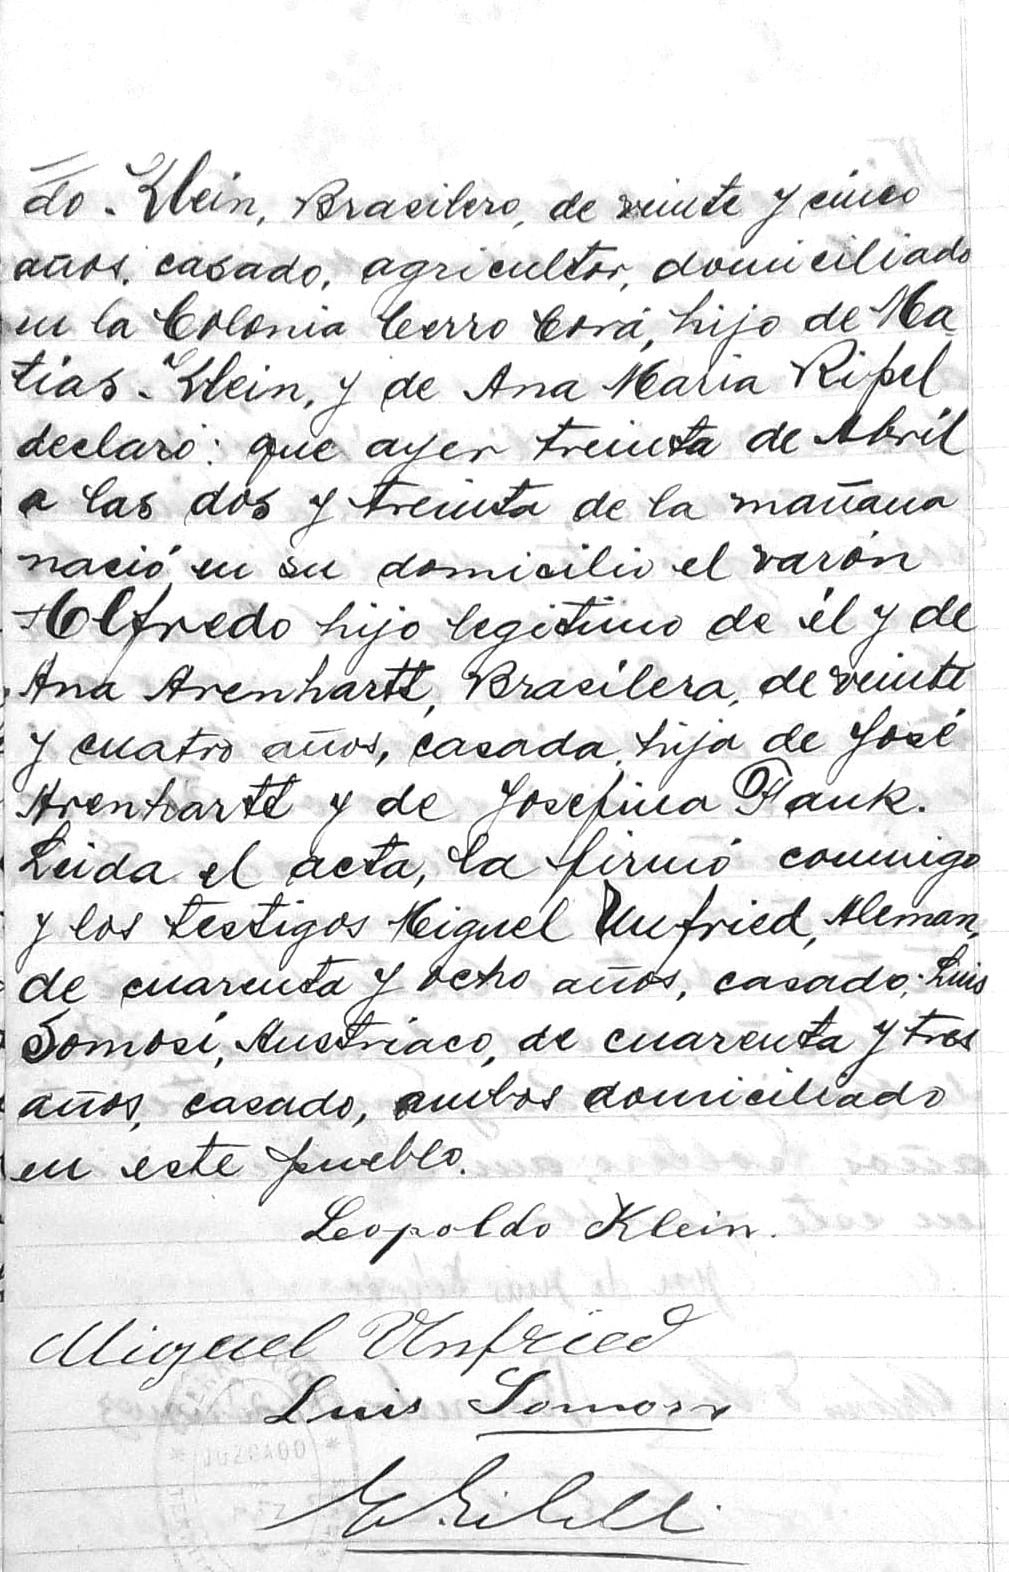 do Klein, Brasilero, de veinte y cinco
años, casado, agricultor, domiciliado
en la Colonia Cerro Corá, hijo de Ma
tías Klein, y de Ana Maria Ripel
declaró: que ayer treinta de Abríl
a las dos y treinta de la mañana
nació en su domicilio el varón
Alfredo hijo legítimo de él y de
Ana Arenhartt, Brasilera, de veinte
y cuatro años, casada, hija de José
Arenhartt y de Josefina Fauk.
Leida el acta, la firmó conmigo
y los testigos Miguel Unfried, Aleman,
de cuarenta y ocho años, casado; Luis
Somosi, Austriaco, de cuarenta y tres
años, casado, ambos domiciliado
en este pueblo.
Leopoldo Klein.
Miguel Unfried
Luis
JUZGADO